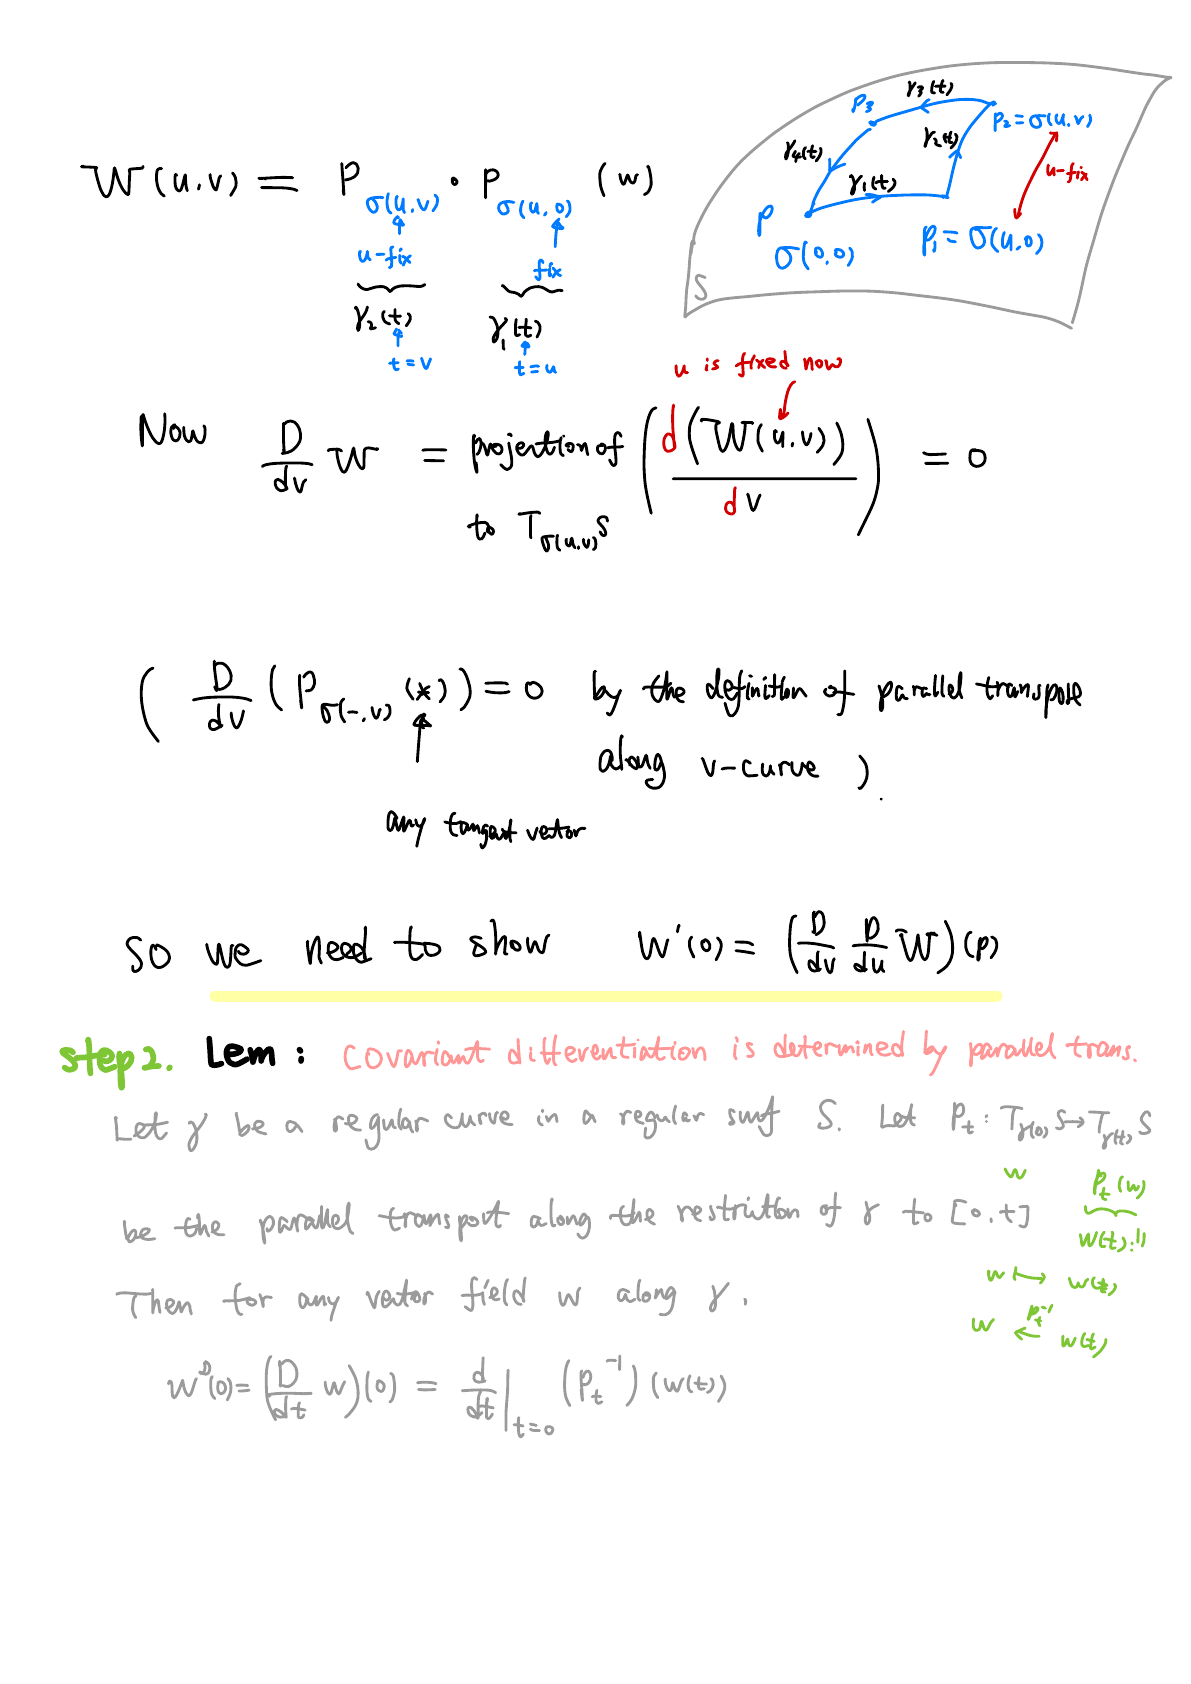 W(u.v) = P_{σ(u.v)} · P_{σ(u,0)} (w)
u-fix fix
γ₂(t) γ₁(t)
t=v t=u
γ₃(t)
P₃
P₂=σ(u.v)
γ₄(t) γ₂(t)
u-fix
γ₁(t)
P
σ(0,0) P₁=σ(u,0)
S
u is fixed now
Now D/dv W = projection of (d(W(u.v))/dv) = 0
to T_{σ(u.v)}S
( D/dv (P_{σ(-,v)} (*)) = 0 by the definition of parallel transpose
along v-curve ).
any tangent vector
So we need to show W'(0) = (D/dv D/du W)(p)
step2. Lem: Covariant differentiation is determined by parallel trans.
Let γ be a regular curve in a regular surf S. Let P_t: T_{γ(0)}S→T_{γ(t)}S
w P_t(w)
be the parallel transport along the restriction of γ to [0.t]
W(t):||
w ↦ w(t)
Then for any vector field w along γ.
w ←P_t^{-1} w(t)
W^D(0) = (D/dt w)(0) = d/dt|_{t=0} (P_t^{-1})(w(t))